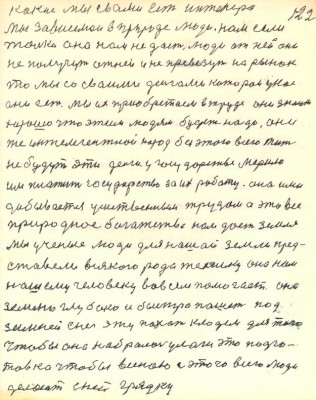 какие мы с вами есть интенера 122
мы зависемой в природе люди. нам если
только она нам не дает, люди от ней они
не получут с ней и не превезут на рынок
то мы со своими деньгами которая у нас
они есть. мы их приобретаем в труде они знают
хорошо что этем людям будет надо, они
же интелегентной народ без этого всего жить
не будут эти деньги у государства
им платит государство за их работу. она или
добывается умственным трудом а это все
природное богатство нам дает земля
мы ученые люди для нашей земли пред-
ставели всякого рода технику она нам
нашему человеку во всем помогает она
землю глубоко и быстро пашет под
зимней снег эту пахат кладем для того
чтобы она набралась улаги это подго-
товка чтобы весною с этого всего люди
делают с ней грядку